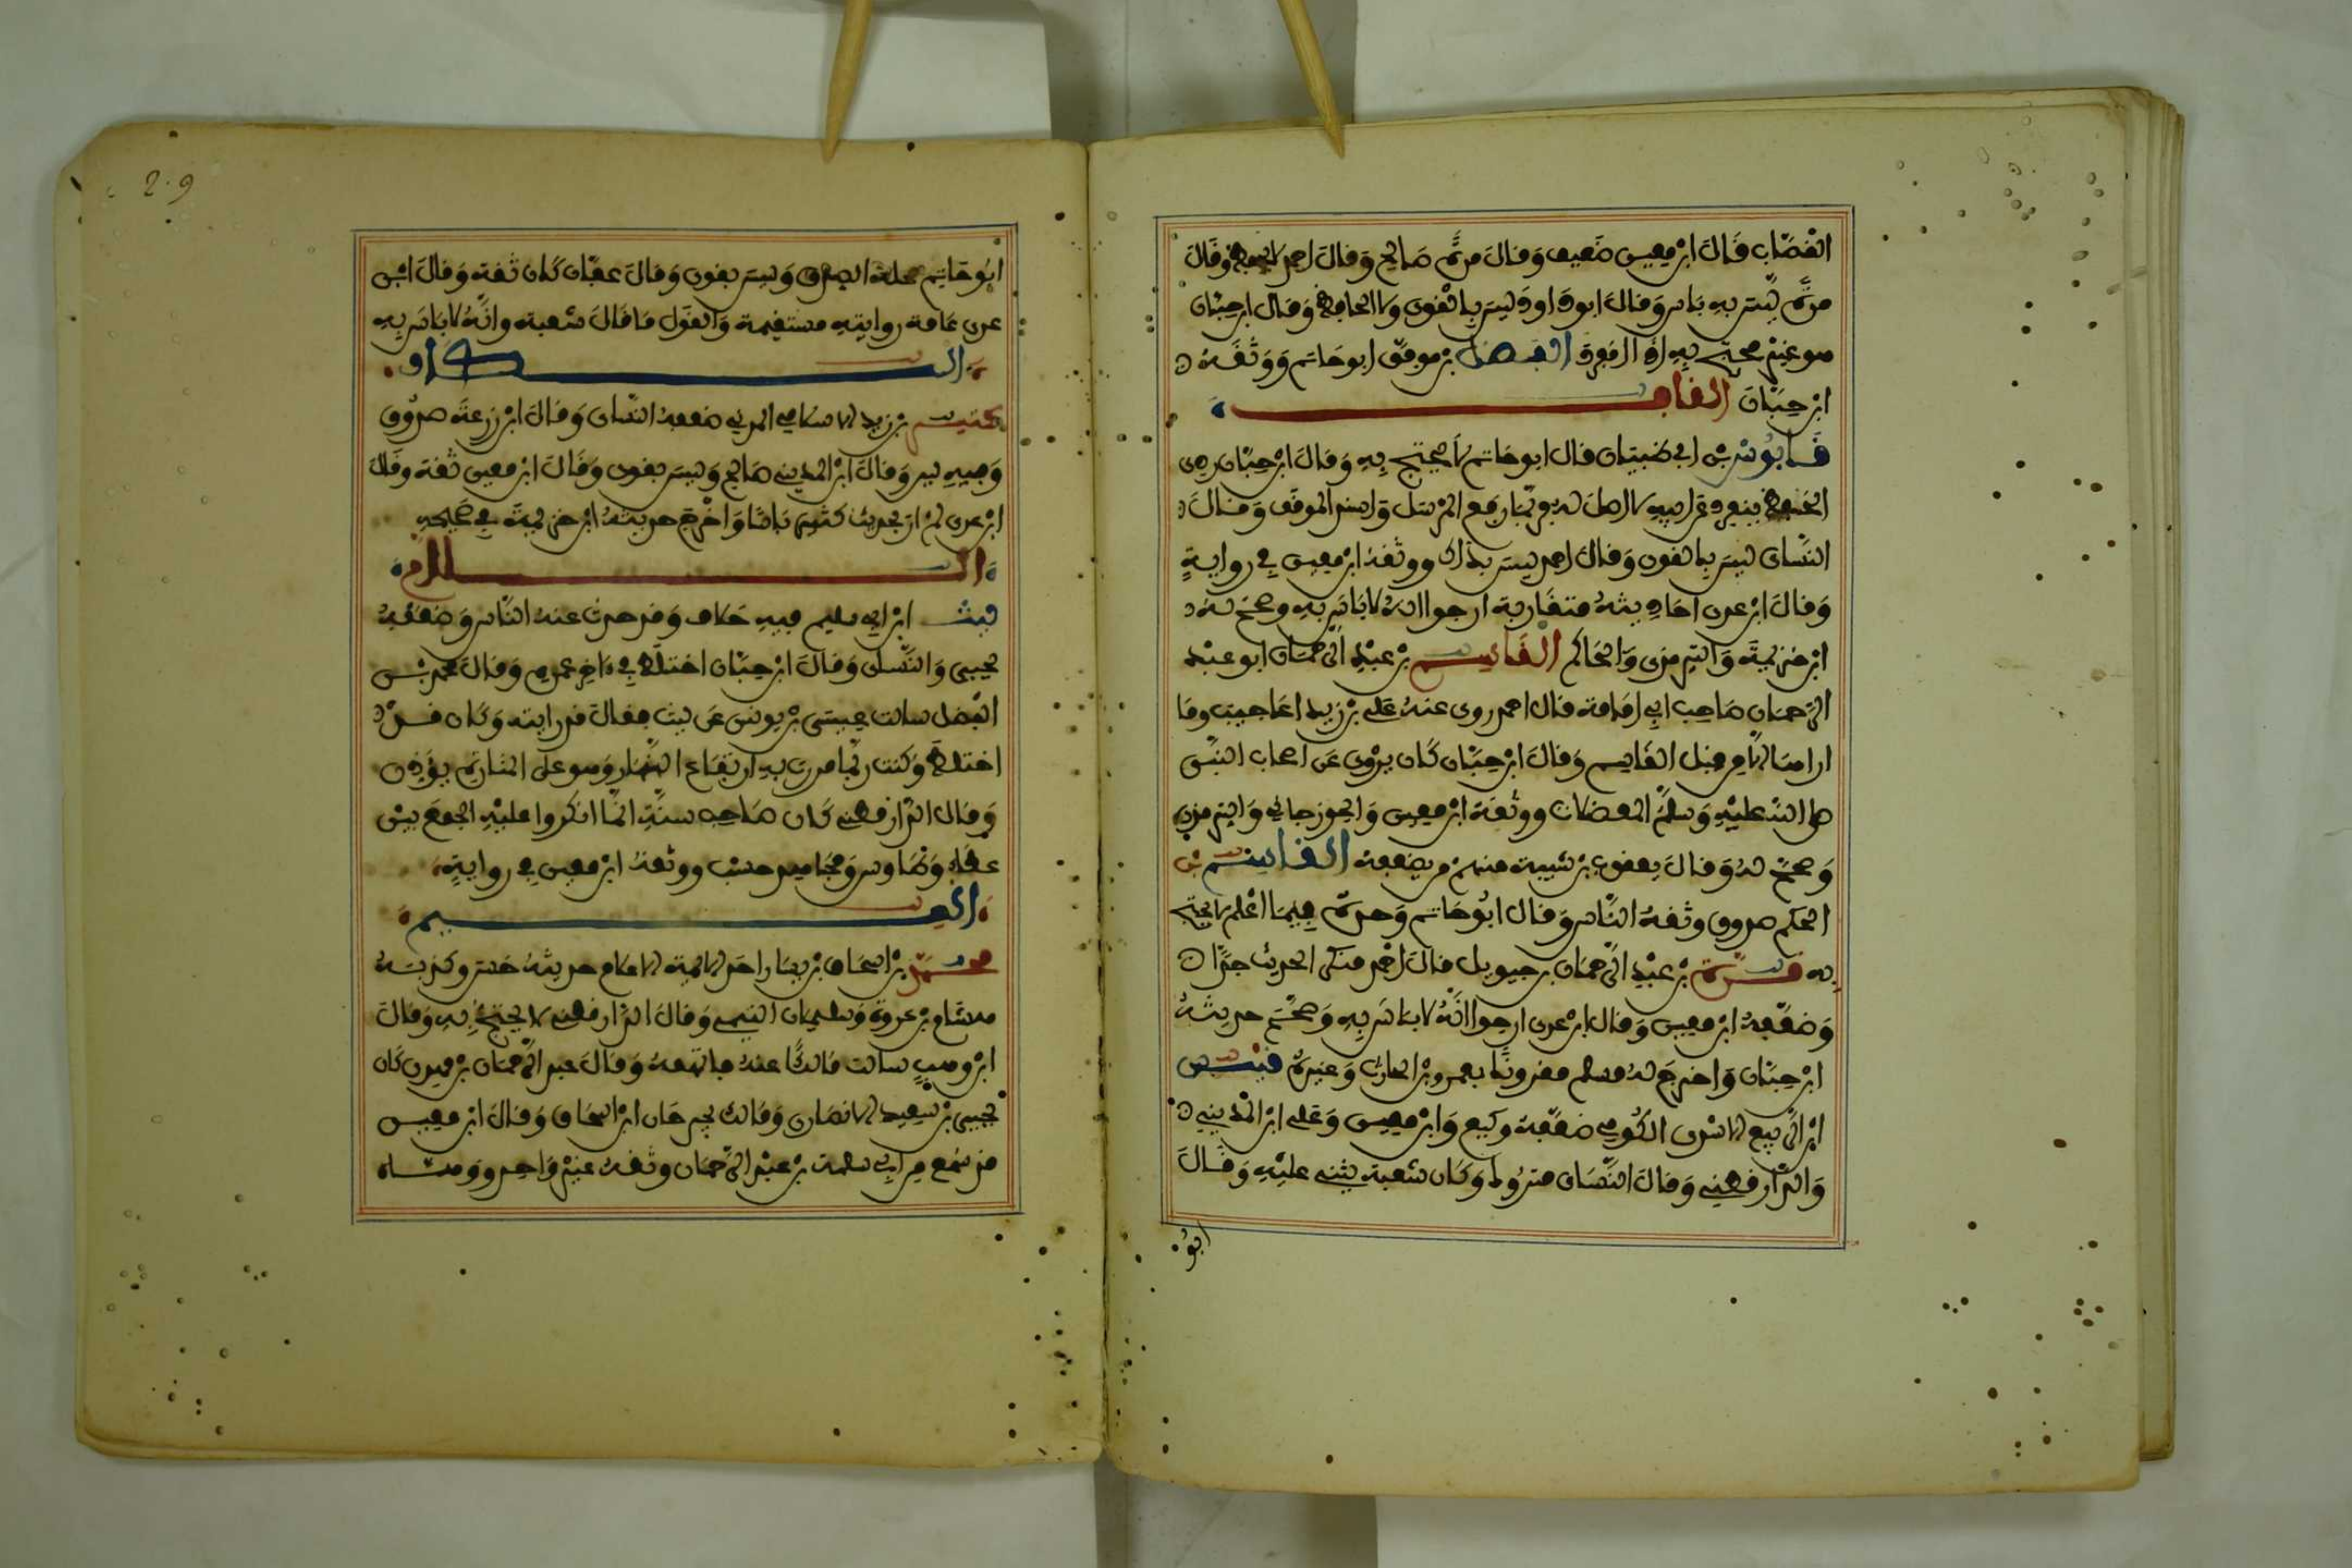 القصّاب قال ابن معين ضعيف وقال مرّة صالح وقال احمد لا يحفظ وقال
مرّة ليس به باس وقال ابو داود ليس بالقوي ولا الحافظ وقال ابن حبان
هو غير محتج به اذا انفرد الفضل بن موفق ابو حاتم ووثقه
ابن حبّان القاف
قابوس بن ابي ظبيان قال ابو حاتم لا يحتج به وقال ابن حبّان ردي
الحفظ ينفرد عن ابيه بما لا اصل له وربّما رفع المرسل واسند الموقف وقال
النّساي ليس بالقوي وقال احمد ليس بذاك ووثقه ابن معين في روايةٍ
وقال ابن عدي احاديثه متقاربة ارجوا انه لا باس به وصحّح له
ابن خزيمة والترمذي والحاكم القاسم بن عبد الرّحمان ابو عبد
الرّحمان صاحب ابي امامة قال احمد روى عنه علي بن زيد اعاجيب وما
اراها الّا من قبل القاسم وقال ابن حبّان كان يروي عن اصحاب النبيّ
صلى الله عليه وسلم المعضلات ووثقه ابن معين والجوزجاني والترمذي
وصحّح له وقال يعقوب بن شيبة منهم من يضعفه القاسم بن
الحكم صدوق وثقه النّاس وقال ابو حاتم وحده فيما اعلم لا يحتج
به قرّة بن عبد الرّحمان بن حيويل قال احمد منكر الحديث جدّا
وضعّفه ابن معين وقال ابن عدي ارجوا انّه لا باس به وصحّح حديثه
ابن حبّان واخرج له مسلم مقرونًا بعمرو بن الحارث وغيره قيس
ابن الرّبيع الاسدي الكوفي ضعّفه وكيع وابن معين وعلي ابن المديني
والدّارقطني وقال النّساي متروك وكان شعبة يثني عليه وقال
ابو
2.9
ابو حاتم محله الصدق وليس بقوي وقال عفّان كان ثقة وقال ابن
عدي عامة رواياته مستقيمة والقول ما قال شعبة وانّه لا باس به
الكاف
كثير بن زيد الاسلمي المدني ضعفه النّساي وقال ابو زرعة صدوق
وفيه لين وقال ابن المديني صالح وليس بقوي وقال ابن معين ثقة وقال
ابن عدي لم ار بحديث كثير باسًا واخرج حديثه ابن خزيمة في صحيحه
اللام
ليث ابن ابي سليم فيه خلاف وقد حدث عنه النّاس وضعّفه
يحيى والنّساي وقال ابن حبّان اختلط في ءاخر عمره وقال محمد بن
الفضل سالت عيسى بن يونس عن ليث فقال قد رايته وكان قد
اختلط وكنت ربّما مررت به ارتفاع النّهار وهو على المنارة يؤذن
وقال الدّارقطني كان صاحب سنّةٍ انّما انكروا عليه الجمع بين
عطاء وطاوس ومجاهد حسب ووثقه ابن معين في روايةٍ
الميم
محمد بن اسحاق بن يسار احد الايمة الاعلام حديثه حسن وكذبه
هشام بن عروة وسليمان التيمي وقال الدّارقطني لا يحتجّ به وقال
ابن وهبٍ سالت مالكًا عنه فاتهمه وقال عبد الرّحمان بن مهدي كان
يحيى بن سعيد الانصاري ومالك يجرحان ابن اسحاق وقال ابن معين
قد سمع من ابي سلمة بن عبد الرّحمان وثقه غير واحد ووهّاه